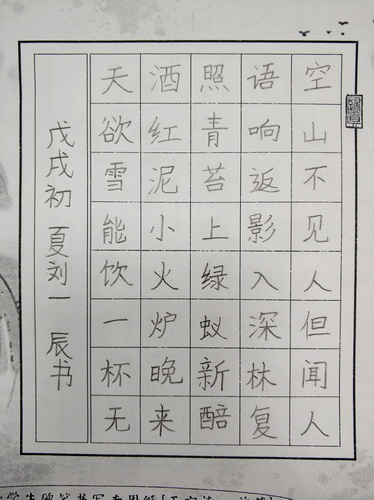 空山不见人但闻人
语响返影入深林复
照青苔上绿蚁新醅
酒红泥小火炉晚来
天欲雪能饮一杯无
戊戌初夏刘一辰书